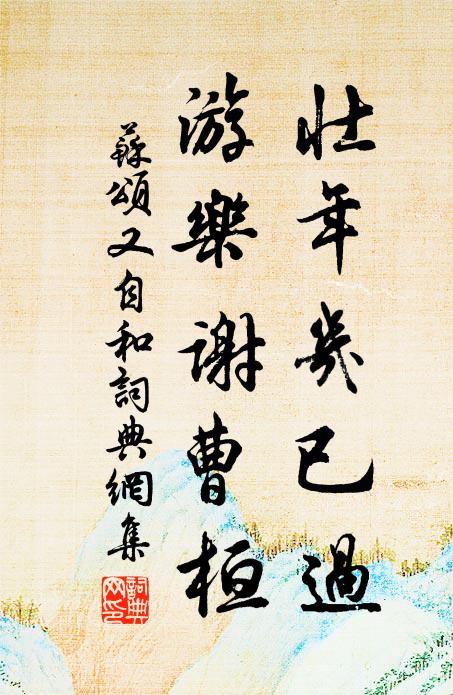 壯年幾已過
游樂謝曹桓
蘇頌又自和詞典網集
詞典網印